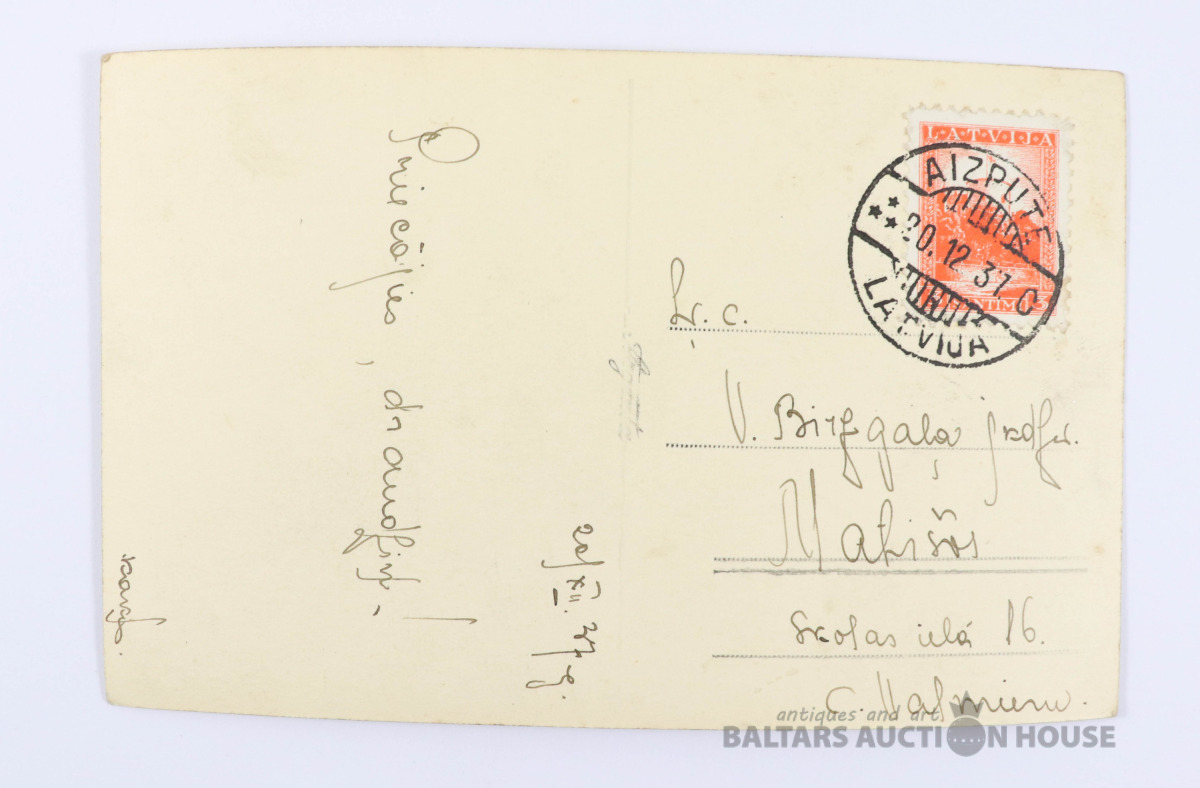 Priecājies, draudziņ!
20/XII. 37. g.
LATVIJA
AIZPUTE
20.12.37 C
LATVIJA
SANTIMI 3
Ļ. c.
V. Birzgaļa jkdz.
Matīšos
Skolas ielā 16.
c. Valmieru.
antiques and art
BALTARS AUCTION HOUSE